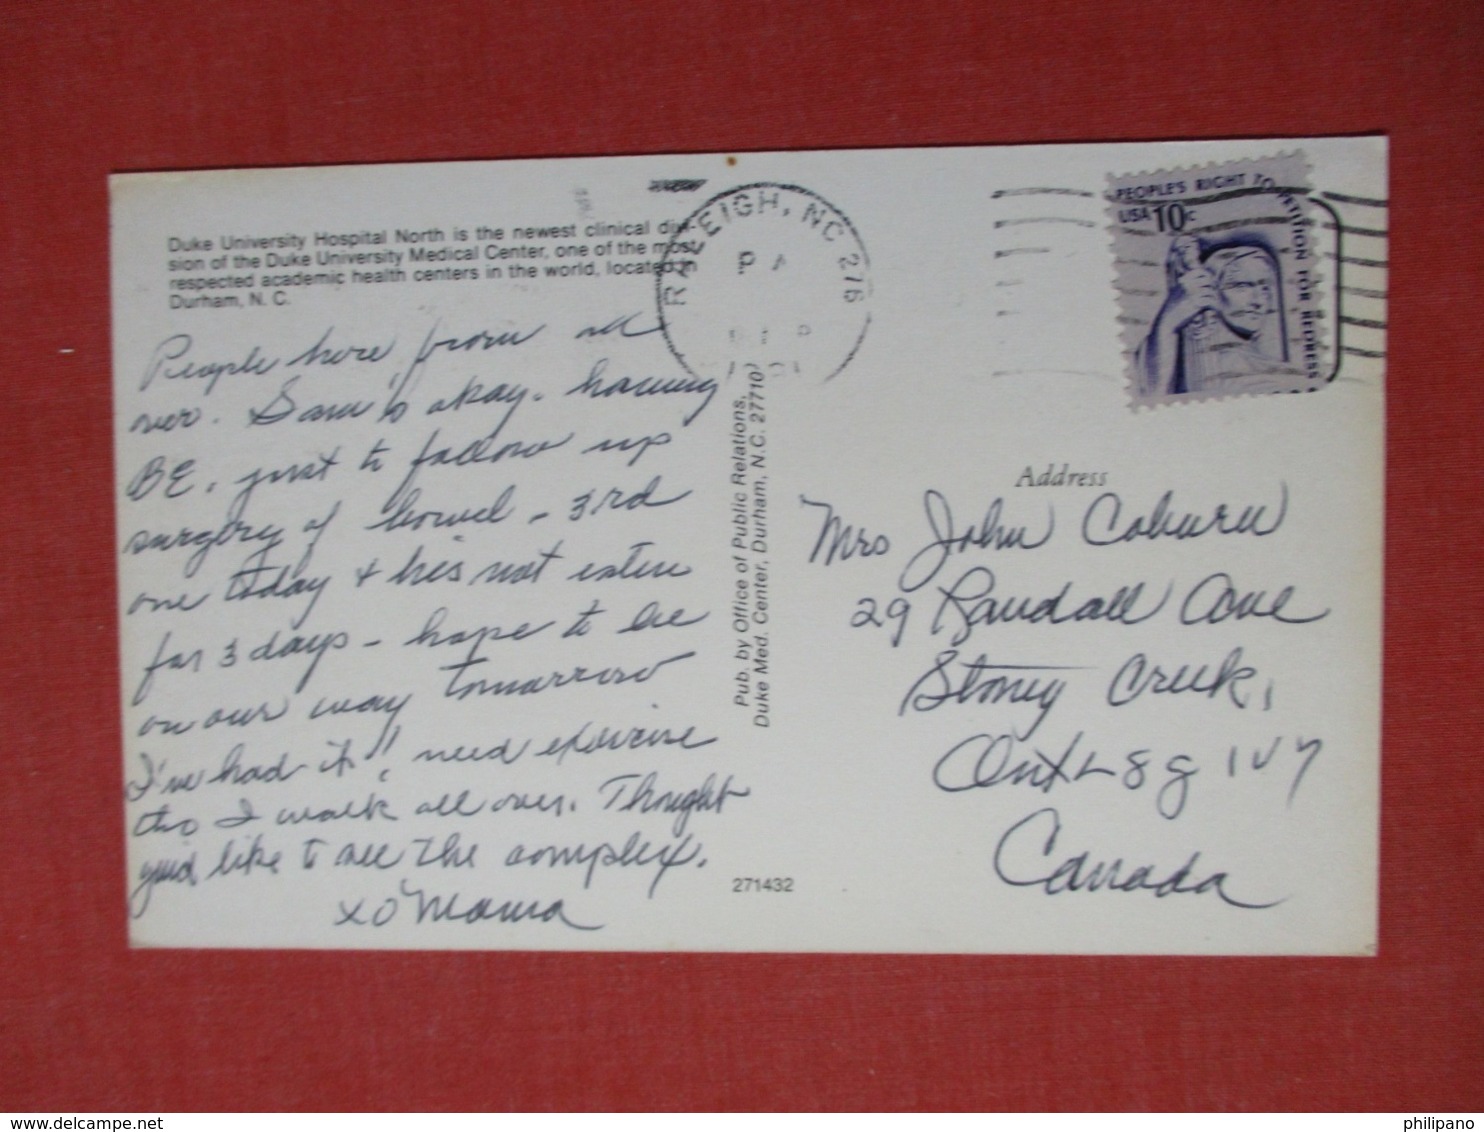 Duke University Hospital North is the newest clinical divi-
sion of the Duke University Medical Center, one of the most
respected academic health centers in the world, located in
Durham, N. C.
People here from all
over. Sam's okay. having
BE. just to follow up
surgery of bowel - 3rd
one today & he's not eaten
for 3 days - hope to be
on our way tomorrow
I've had it! need exercise
tho I walk all over. Thought
you'd like to see the complex.
xo Mama
Pub. by Office of Public Relations,
Duke Med. Center, Durham, N.C. 27710
271432
RALEIGH, NC 276
PEOPLE'S RIGHT TO PETITION FOR REDRESS
USA 10c
Address
Mrs John Coburn
29 Randall Ave
Stoney Creek,
Ont L8G 1V7
Canada
www.delcampe.net
philipano